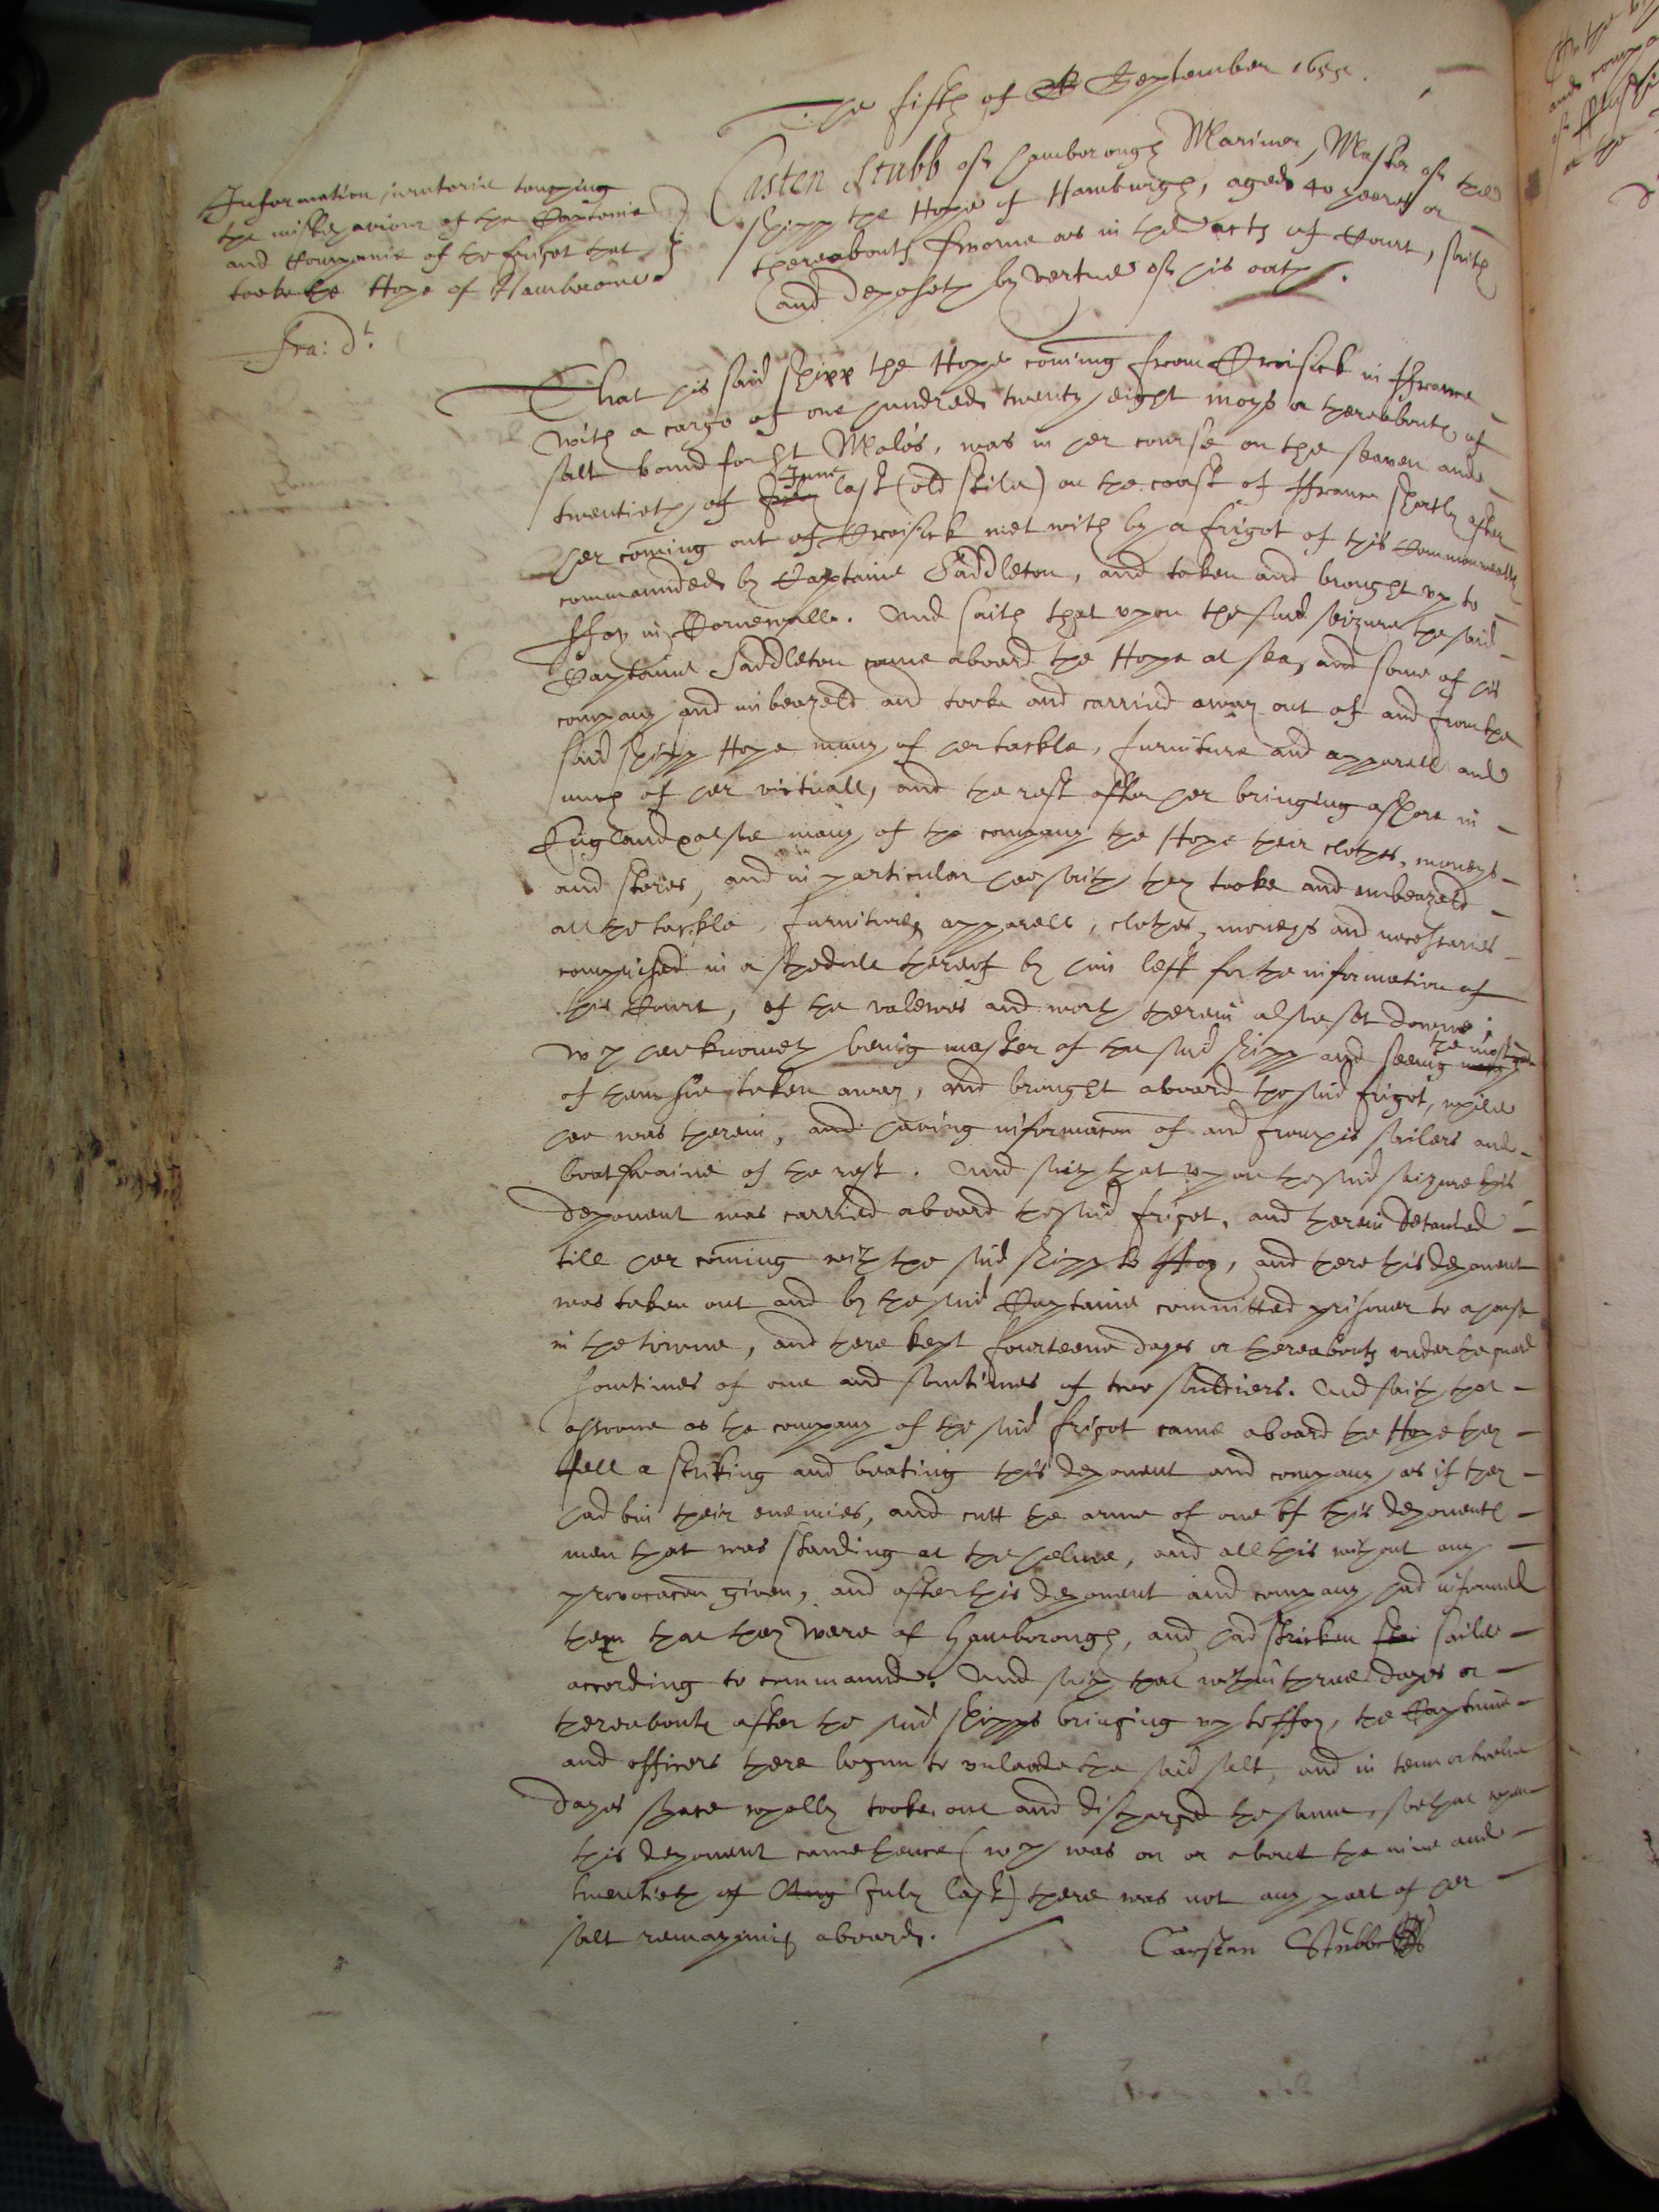 The fifth of September 1655.
Information juratorie touching
the misbehaviour of the Captaine
and Companie of the frigot that
tooke the Hope of Hamborowe.
Fra: dt.
Casten Stubb of Hamborough Mariner, Master of the
shipp the Hope of Hamburgh, aged 40 yeeres or
thereabouts sworne as in the acts of Court, saith
and deposeth by vertue of his oath.
That his said shipp the Hope coming from Croisick in ffrance
with a cargo of one hundred twenty eight moys or thereabouts of
salt bound for St Malos, was in her course on the seaven and
twentieth of July June last (old stile) on the coast of ffrance shortly after
her coming out of Croisick met with by a frigot of this Commonwealth
commaunded by Captaine Saddleton, and taken and brought up to
ffoy in Cornewalle. And saith that upon the said seizure the said
Captaine Saddleton came aboard the Hope at sea, and some of his
company and imbeazeld and tooke and carried away out of and from the
said shipp Hope many of her tackle, furniture and apparell and
much of her victuall, and the rest after her bringing ashore in
England, alsoe many of the company the Hope their clothes, moneys
and stores, and in particular hee saith they tooke and imbeazeld
all the tackle, furniture, apparell, clothes, moneys and necessaries
comprised in a schedule thereof by him left for the information of
this Court, of the valewes and worth therein alsoe set downe;
wch hee knoweth being master of the said shipp and seeing many the most part
of them soe taken away, and brought aboard the said frigot, while
hee was therein, and having informacon of and from his sailers and
boatswaine of the rest. And saith that upon the said seizure this
deponent was carried aboard the said frigot, and therein detained
till her coming with the said shipp to ffoy, and there this deponent
was taken out and by the said Captaine committed prisoner to a house
in the towne, and there kept fourteene dayes or thereabouts under the guard
somtimes of one and somtimes of two souldiers. And saith that
assoone as the company of the said frigot came aboard the Hope they
fell a striking and beating this deponent and company as if they
had bin their enemies, and cutt the arme of one of this deponents
men that was standing at the helme, and all this without any
provocacon given, and after this deponent and company had informed
them that they were of Hamborough, and had stricken saile
according to commaund. And saith that within three dayes or
thereabouts after the said shipps bringing up to ffoy, the Captaine
and officers there begun to unlade the said salt, and in tenn or twelve
dayes space wholly tooke out and discharged the same, soe that when
this deponent came thence (wch was on or about the nine and
twentieth of Aug July last) there was not any part of her
salt remayning aboard.
Carsten Stubbe